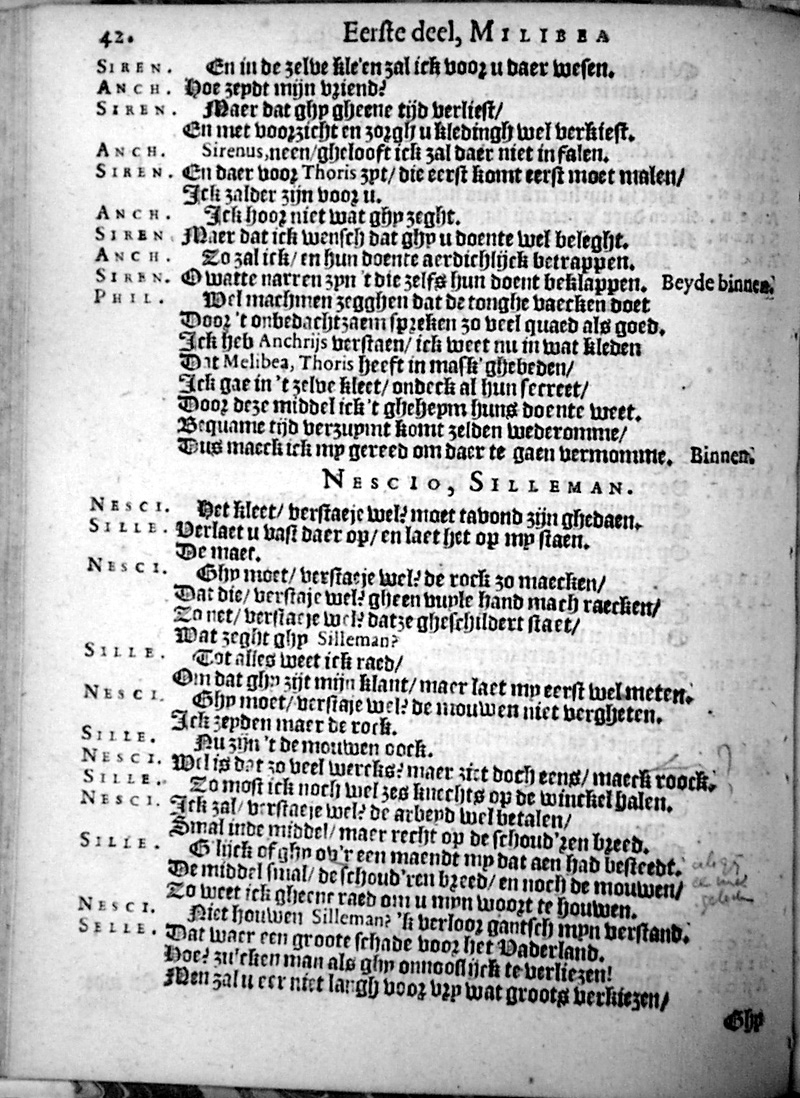 42. Eerste deel, MILIBEA
SIREN. En in de zelve kle'en zal ick voor u daer wesen.
ANCH. Hoe zeydt mijn vriend?
SIREN. Maer dat ghy gheene tijd verliest/
En met voorzicht en zorgh u kledingh wel verkiest.
ANCH. Sirenus, neen/ ghelooft ick zal daer niet in falen.
SIREN. En daer voor Thoris zyt/ die eerst komt eerst moet malen/
Ick zalder zijn voor u.
ANCH. Ick hoor niet wat ghy zeght.
SIREN. Maer dat ick wensch dat ghy u doente wel beleght.
ANCH. Zo zal ick/ en hun doente aerdichlijck betrappen.
SIREN. O watte narren zyn 't die zelfs hun doent beklappen. Beyde binnen.
PHIL. Wel machmen zegghen dat de tonghe vaecken doet
Door 't onbedachtzaem spreken zo veel quaed als goed.
Ick heb Anchrijs verstaen/ ick weet nu in wat kleden
Dat Melibea, Thoris heeft in mask' ghebeden/
Ick gae in 't zelve kleet/ ondeck al hun secreet/
Door deze middel ick 't gheheym huns doente weet.
Bequame tijd verzuymt komt zelden wederomme/
Dus maeck ick my gereed om daer te gaen vermomme. Binnen.
NESCIO, SILLEMAN.
NESCI. Het kleet/ verstaeje wel? moet tavond zijn ghedaen.
SILLE. Verlaet u vast daer op/ en laet het op my staen.
De maet.
NESCI. Ghy moet/ verstaeje wel? de rock zo maecken/
Dat die/ verstaje wel? gheen vuyle hand mach raecken/
Zo net/ verstaeje wel? datze gheschildert staet/
Wat zeght ghy Silleman?
SILLE. Tot alles weet ick raed/
Om dat ghy zijt mijn klant/ maer laet my eerst wel meten.
NESCI. Ghy moet/ verstaje wel? de mouwen niet vergheten.
Ick zeyden maer de rock.
SILLE. Nu zijn 't de mouwen oock.
NESCI. Wel is dat zo veel wercks? maer ziet doch eens/ maeck roock.
SILLE. Zo most ick noch wel zes knechts op de winckel halen.
NESCI. Ick zal/ verstaeje wel? de arbeyd wel betalen/
Smal inde middel/ maer recht op de schoud'ren breed.
SILLE. G'lijck of ghy ov'r een maendt my dat aen had besteedt.
De middel smal/ de schoud'ren breed/ en noch de mouwen/
Zo weet ick gheene raed om u myn woort te houwen.
NESCI. Niet houwen Silleman? 'k verloor gantsch myn verstand.
SELLE. Dat waer een groote schade voor het Vaderland.
Hoe? zu'cken man als ghy onnooslijck te verliezen!
Men zal u eer niet langh voor vry wat groots verkiezen/
Ghy